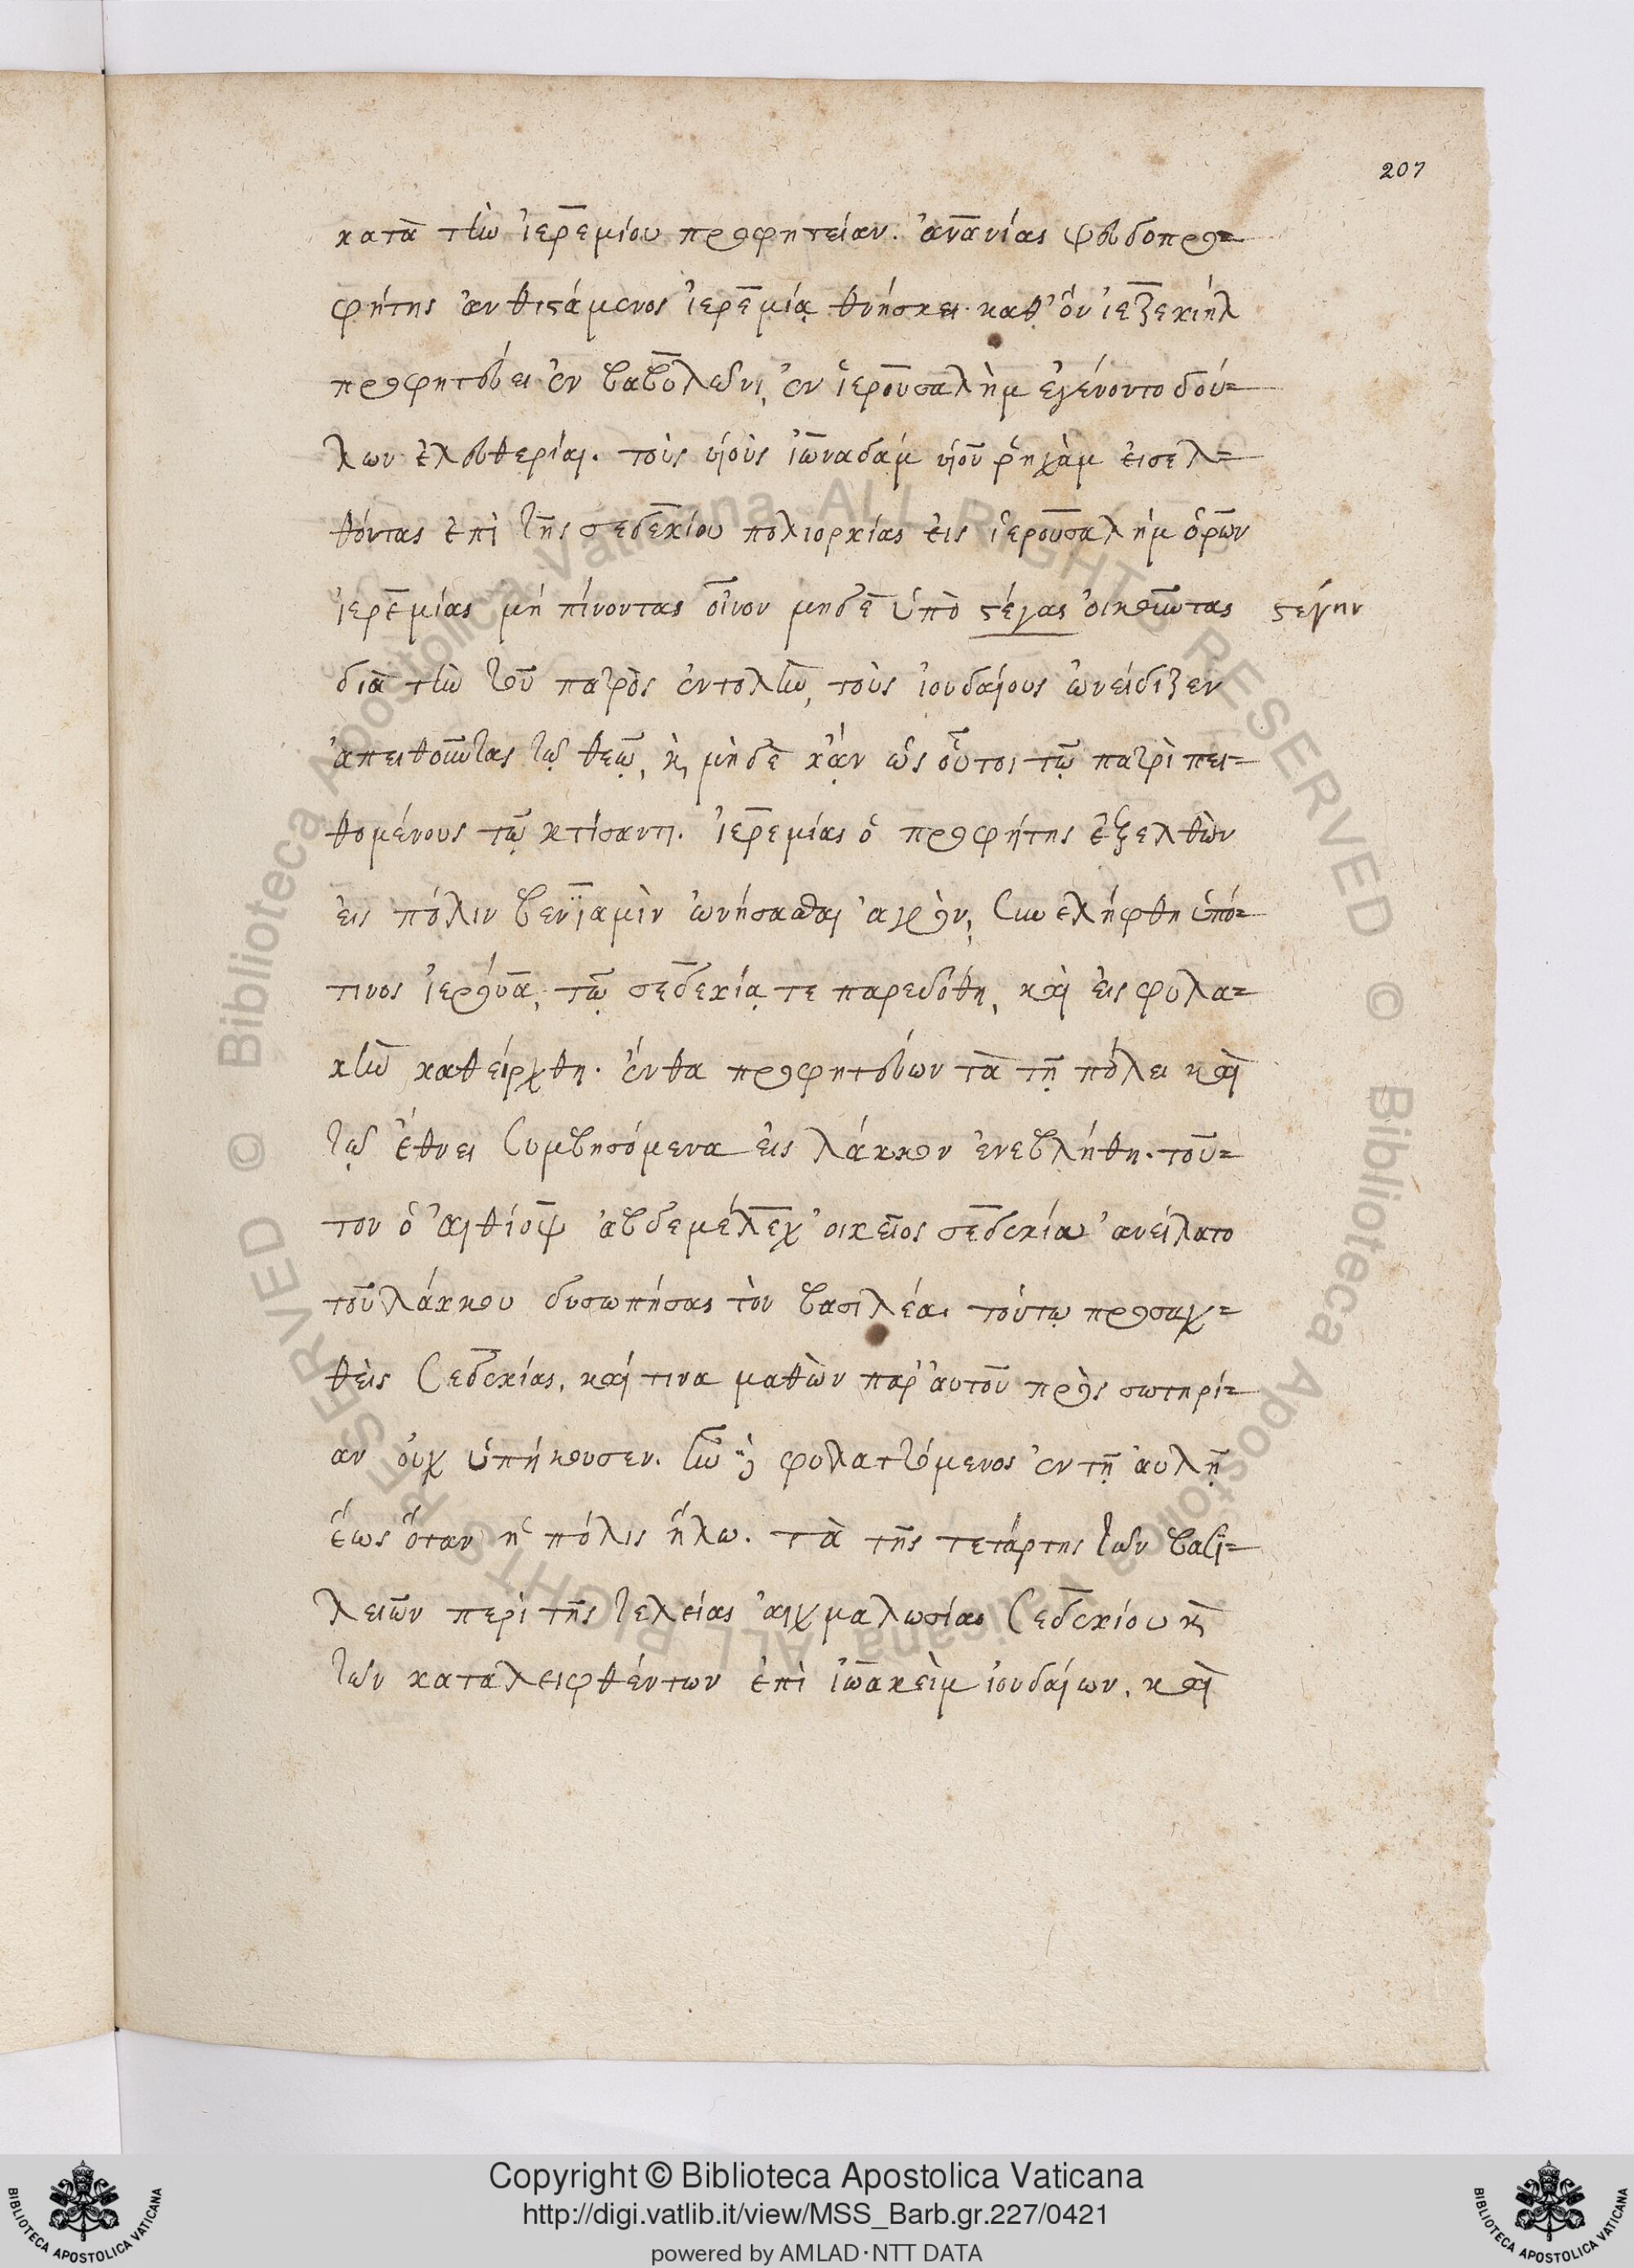 207
κατὰ τὴν ἰερεμίου προφητείαν. ἀνανίας ψευδοπρο=
φήτης ἀνθιστάμενος ἰερεμίᾳ θνήσκει· καθ' ὃν ἰεζεκιὴλ
προφητεύει ἐν βαβυλῶνι, ἐν ἱερουσαλὴμ ἐγένοντο δού=
λων ἐλευθερίαι. τοὺς υἱοὺς ἰωναδάμ υἱοῦ ῥηχὰμ εἰσελ=
θόντας ἐπὶ τῆς σεδεκίου πολιορκίας εἰς ἱερουσαλήμ ὁρῶν
ἰερεμίας μή πίνοντας οἶνον μηδὲ ὑπὸ στέγας οἰκοῦντας
στέγην
διὰ τὴν τοῦ πατρὸς ἐντολὴν, τοὺς ἰουδαίους ὠνείδιζεν
ἀπειθοῦντας τῷ θεῷ, κ, μηδὲ κἂν ὡς οὗτοι τῷ πατρὶ πει=
θομένους τῷ κτίσαντι. ἰερεμίας ὁ προφήτης ἐξελθὼν
εἰς πόλιν βενϊαμὶν ὠνήσασθαι ἀγρὸν, συνελήφθη ὑπό=
τινος ἰερουΐα, τῷ σεδεκίᾳ τε παρεδόθη, καὶ εἰς φυλα=
κὴν καθείρχθη. ἔνθα προφητεύων τὰ τῇ πόλει καὶ
τῷ ἔθνει συμβησόμενα εἰς λάκκον ἐνεβλήθη. τοῦ=
τον ὁ αἰθίοψ ἀβδεμέλεχ οἰκεῖος σεδεκίου ἀνείλατο
τοῦ λάκκου δυσωπήσας τὸν βασιλέα. τούτῳ προσαχ=
θεὶς σεδεκίας, καί τινα μαθὼν παρ' αὐτοῦ πρὸς σωτηρί=
αν οὐχ ὑπήκουσεν. ἦν δὲ φυλαττόμενος ἐν τῇ αὐλῇ
ἕως ὅταν ἡ πόλις ἥλω. τὰ τῆς τετάρτης τῶν βασι=
λειῶν περὶ τῆς τελείας αἰχμαλωσίας σεδεκίου κ
τῶν καταλειφθέντων ἐπὶ ἰωακεὶμ ἰουδαίων. καὶ
© Biblioteca Apostolica Vaticana ALL RIGHTS RESERVED
© Biblioteca Apostolica Vaticana ALL RIGHTS RESERVED
Copyright © Biblioteca Apostolica Vaticana
http://digi.vatlib.it/view/MSS_Barb.gr.227/0421
powered by AMLAD·NTT DATA
BIBLIOTECA APOSTOLICA VATICANA
BIBLIOTECA APOSTOLICA VATICANA